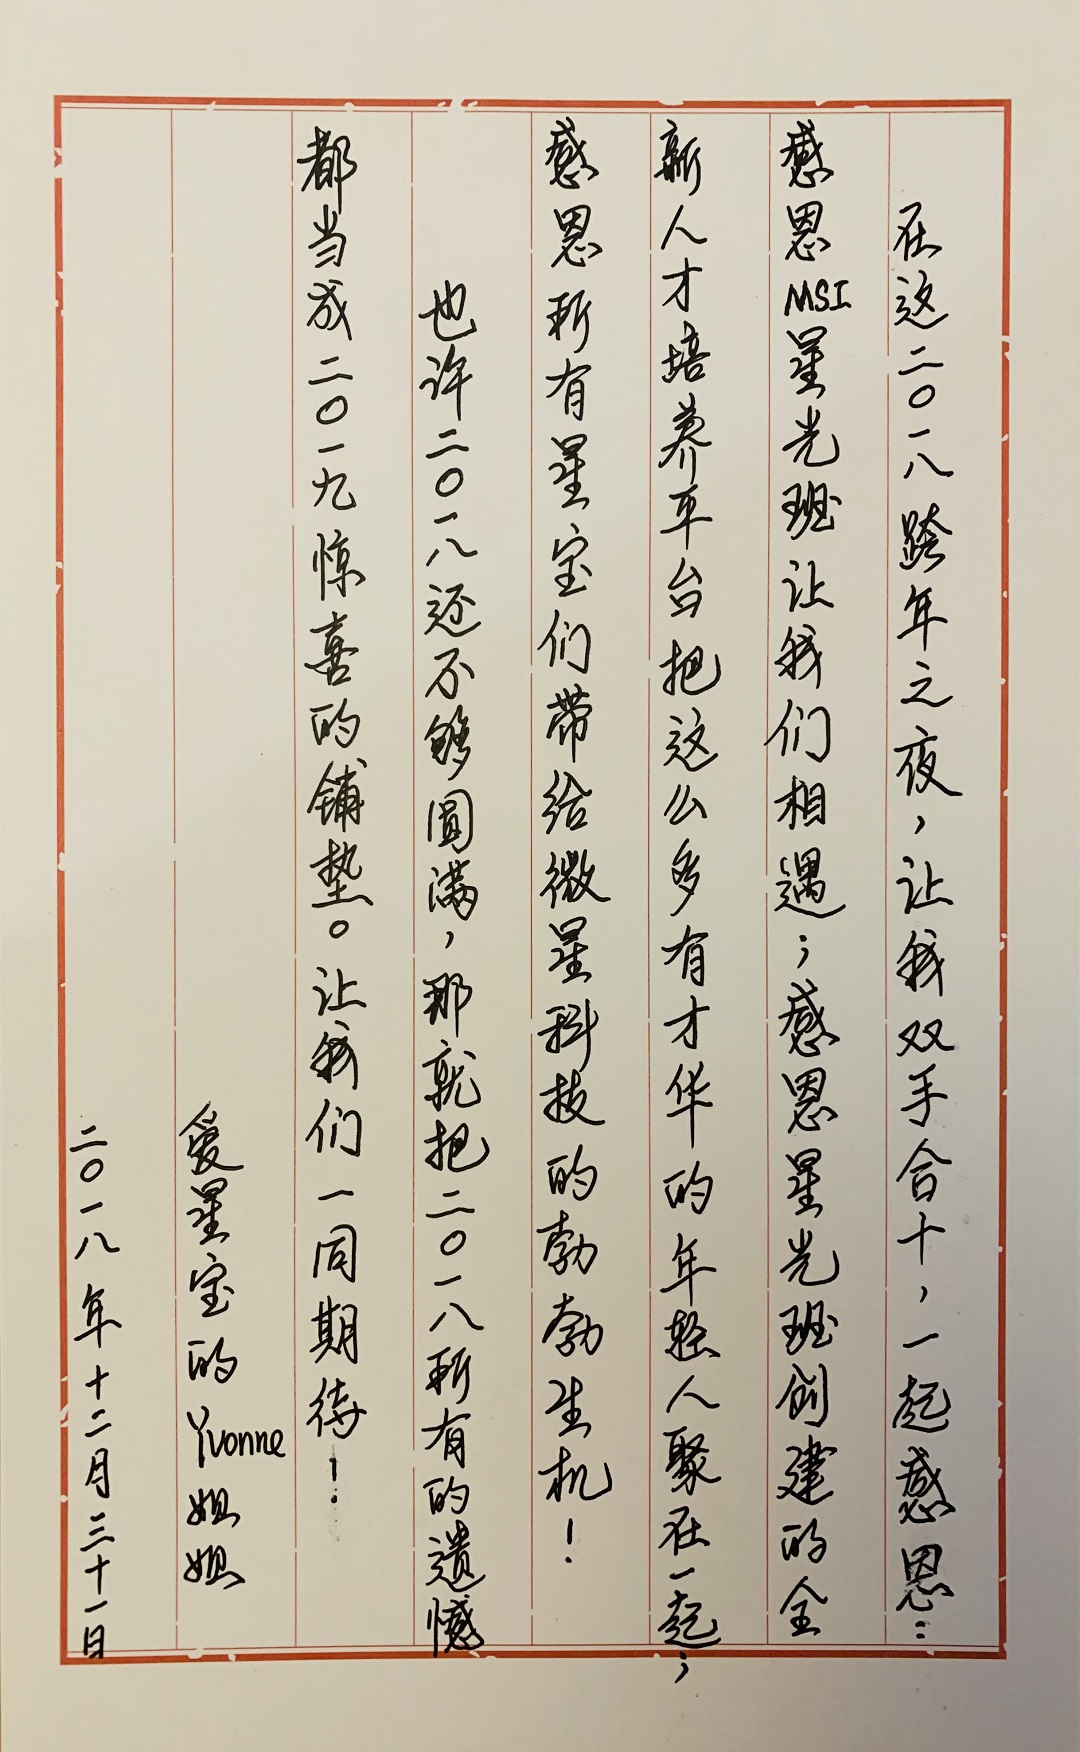 在这二〇一八跨年之夜，让我双手合十，一起感恩：
感恩MSI星光班让我们相遇；感恩星光班创建的全
新人才培养平台把这么多有才华的年轻人聚在一起；
感恩所有星宝们带给微星科技的勃勃生机！
也许二〇一八还不够圆满，那就把二〇一八所有的遗憾
都当成二〇一九惊喜的铺垫。让我们一同期待！
爱星宝的Yvonne姐姐
二〇一八年十二月三十一日